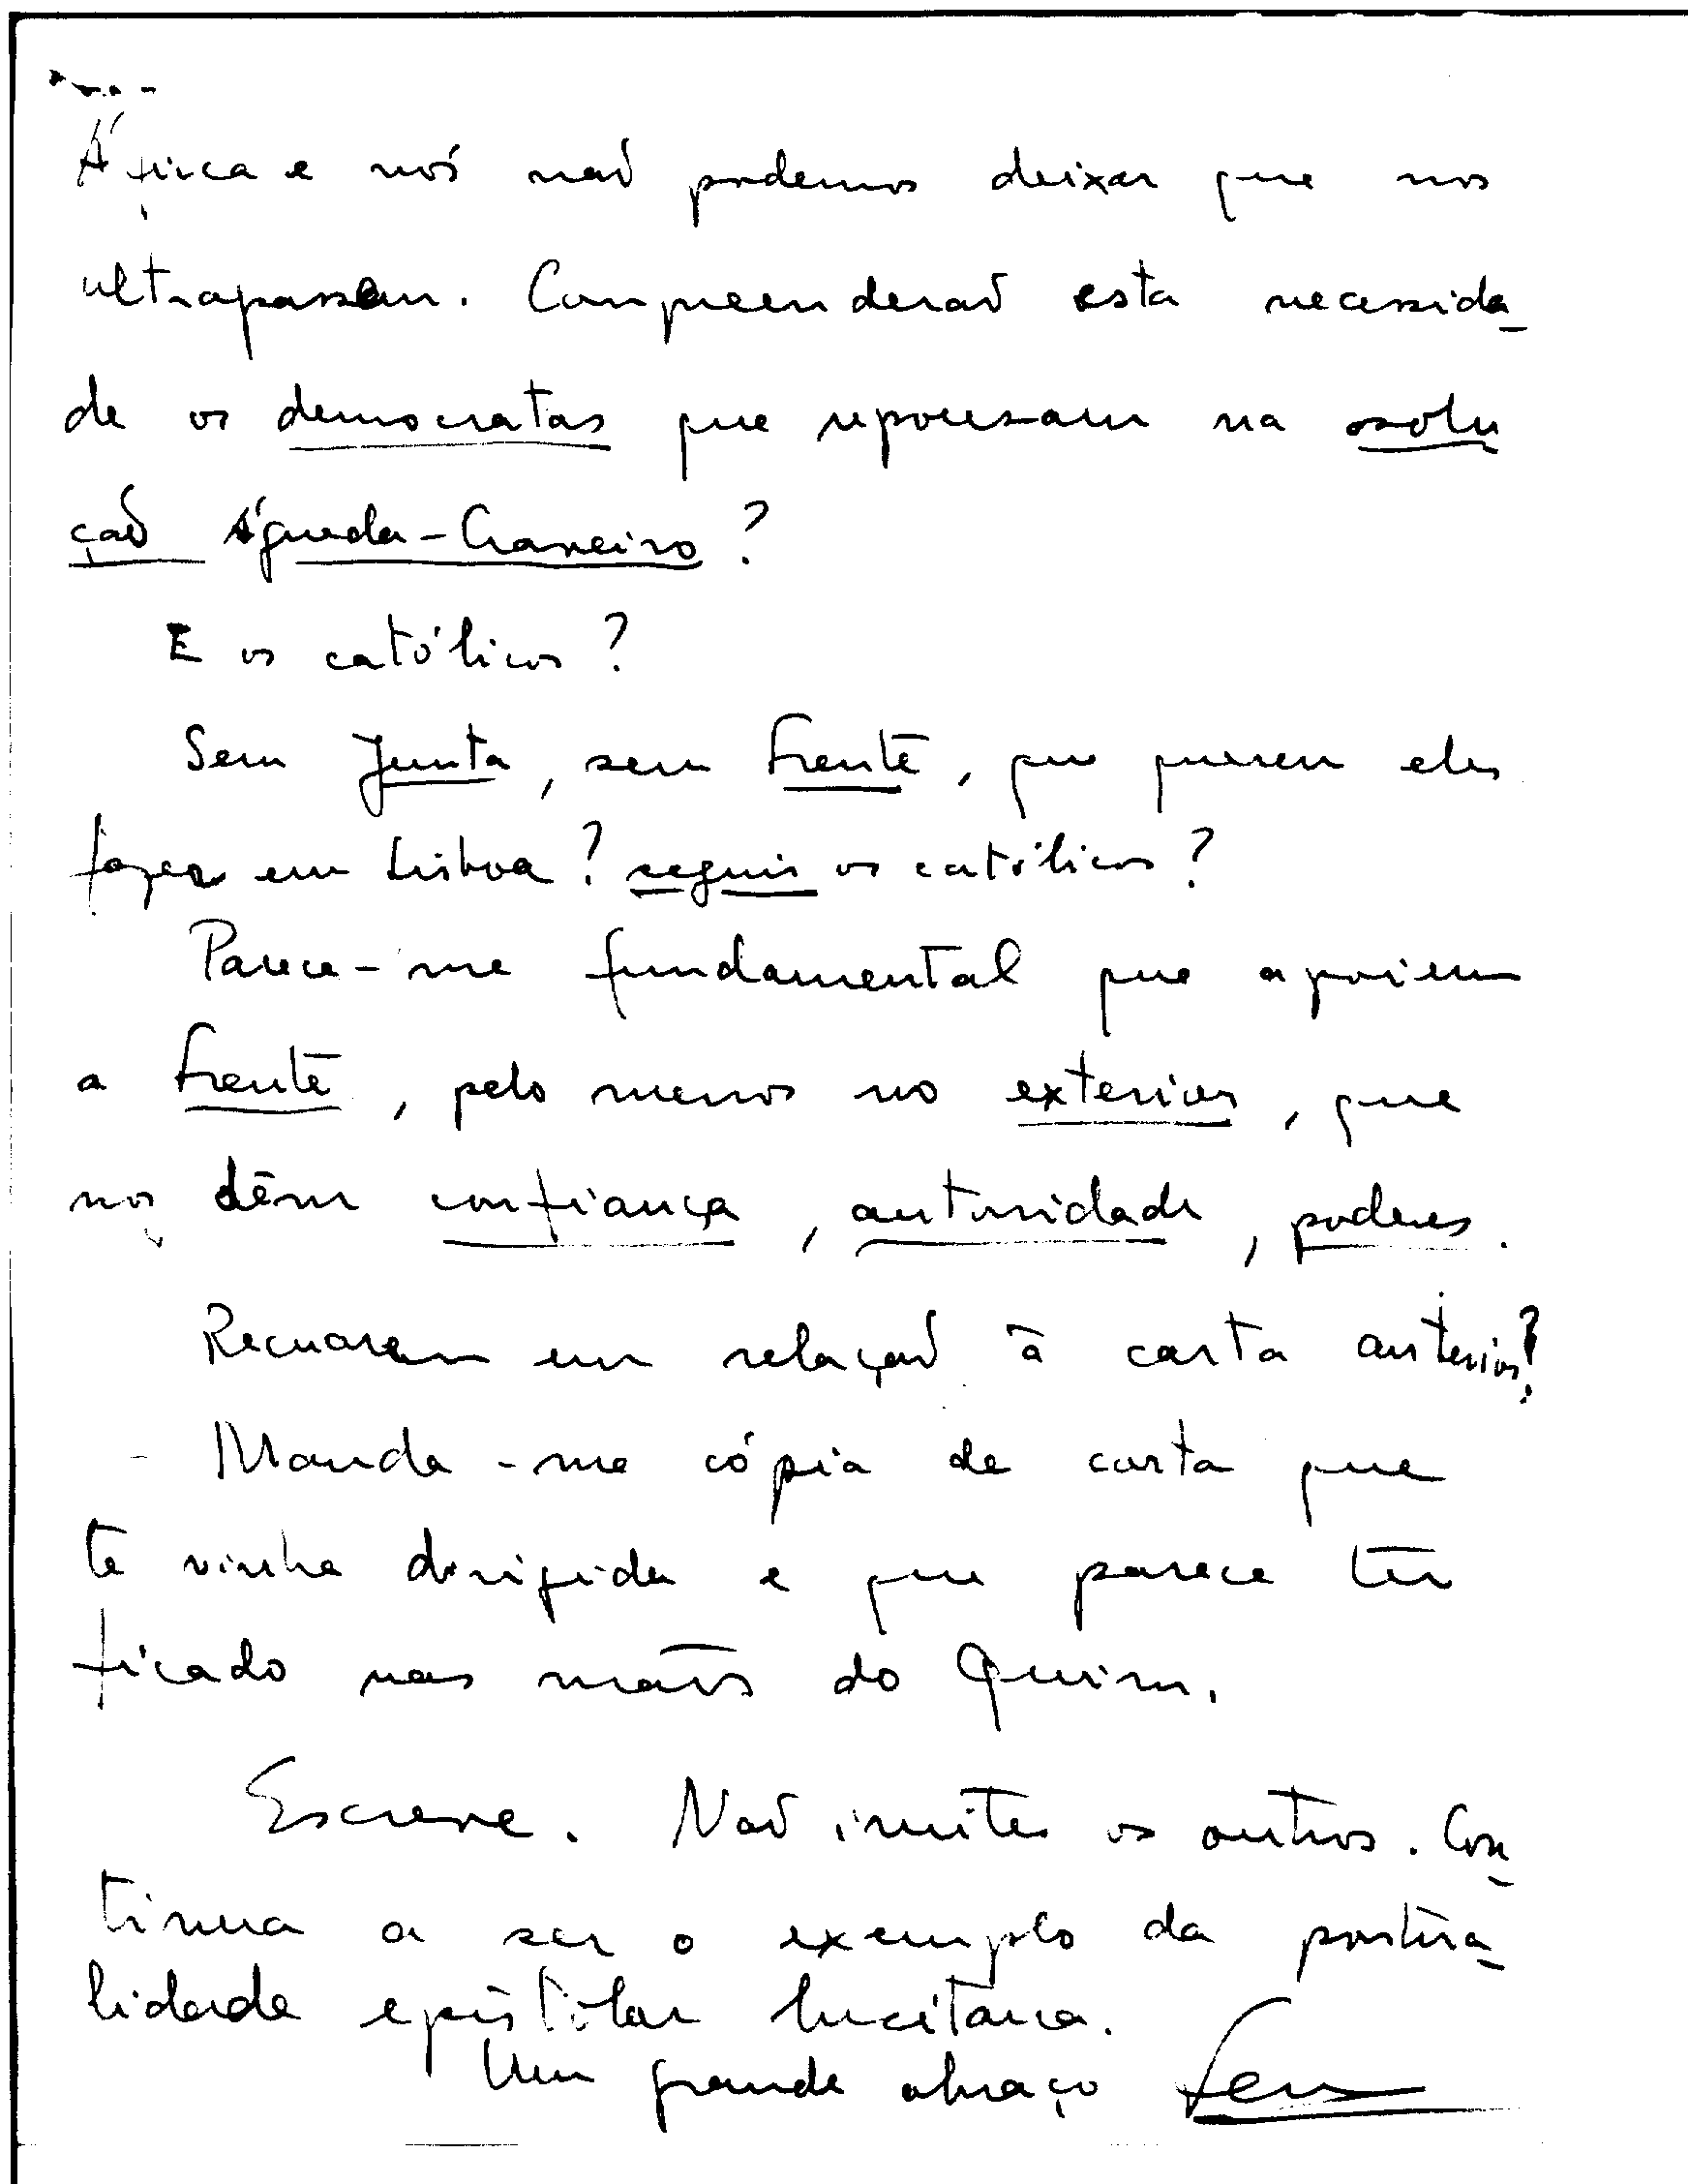 África e nós não podemos deixar que nos
ultrapassem. Compreenderão esta necessida-
de os democratas que repousam na solu
ção Águeda-Craveiro?
E os católicos?
Sem Junta, sem Frente, que querem eles
fazer em Lisboa? seguir os católicos?
Parece-me fundamental que apoiem
a Frente, pelo menos no exterior, que
nos dêm confiança, autoridade, poderes.
Recuaram em relação à carta anterior?
- Manda-me cópia de carta que
te vinha dirigida e que parece ter
ficado nas mãos do Quim.
Escreve. Não imites os outros. Con-
tinua a ser o exemplo da
epistolar lusitana.
Um grande abraço